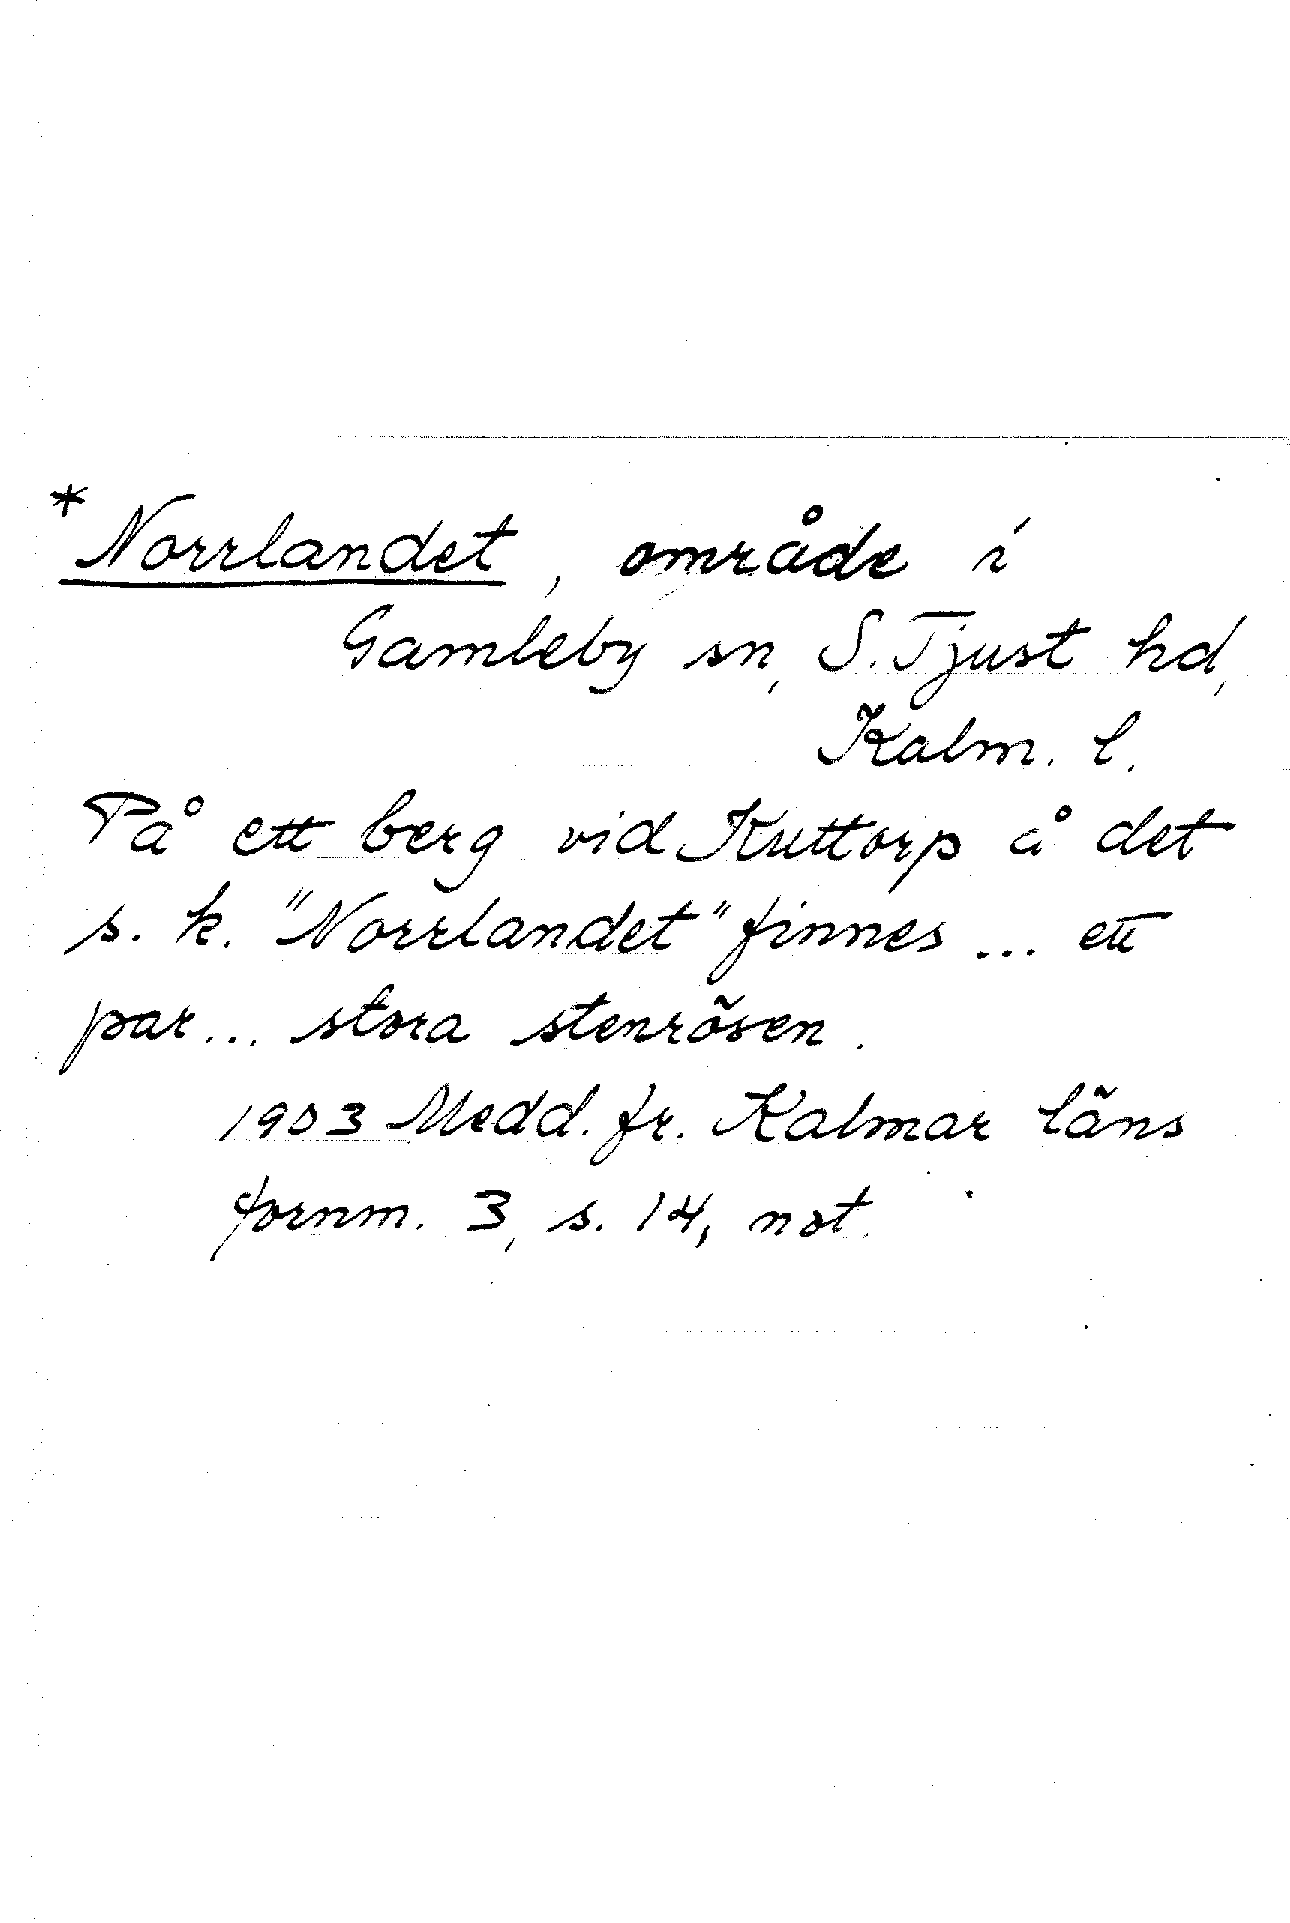 *Norrlandet, område i
Gamleby sn, S. Tjust hd,
Kalm. l.
På ett berg vid Kuttorp å det
s. k. "Norrlandet" finnes ... ett
par ... stora stenrösen.
1903 Medd. fr. Kalmar läns
fornm. 3, s. 14, not.